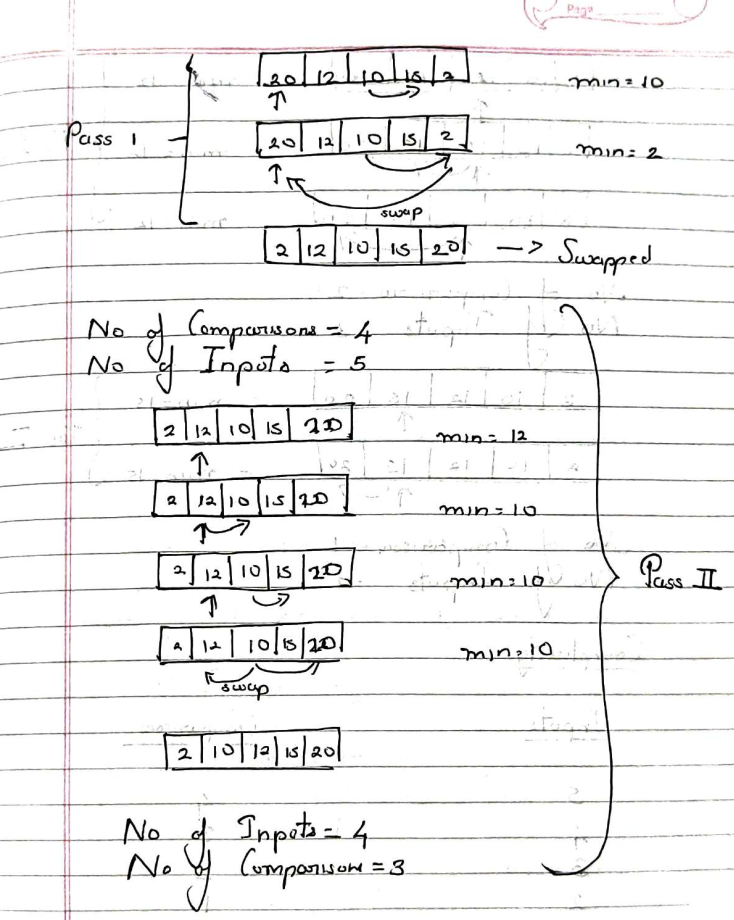 Page
20 12 10 15 2 min = 10
Pass 1
20 12 10 15 2 min = 2
swap
2 12 10 15 20 -> Swapped
No of Comparisons = 4
No of Inputs = 5
2 12 10 15 20 min = 12
2 12 10 15 20 min = 10
2 12 10 15 20 min = 10
Pass II
2 12 10 15 20 min = 10
swap
2 10 12 15 20
No of Inputs = 4
No of Comparison = 3